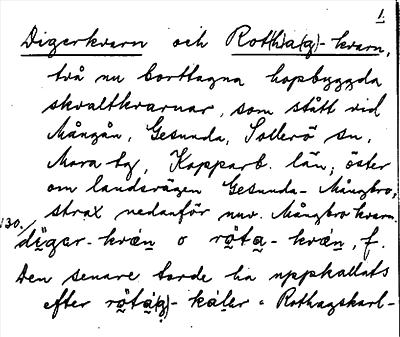 1.
Digerkvarn och Rot(h)a(g)-kvarn,
två nu borttagna hopbyggda
skvaltkvarnar, som stått vid
Mångån, Gesunda, Sollerö sn,
Mora tg, Kopparb. län; öster
om landsvägen Gesunda-Mångbro,
strax nedanför nuv. Mångbro kvarn.
130. di̤gar-kvä́n o rö̤ta̤-kvä́n, f.
Den senare torde ha uppkallats
efter rö̤tá̤(g)-ká̤ler = Rothagskarl-